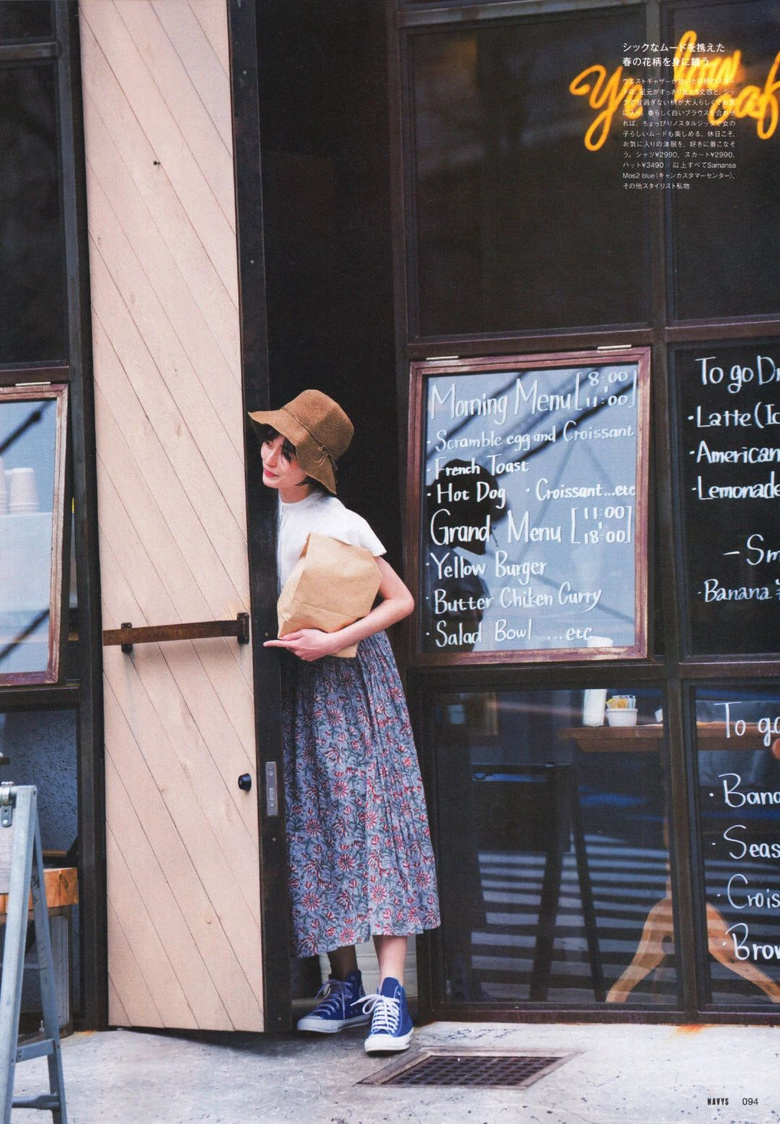 シックなムードを携えた
春の花柄を身に纏う
れば、ちょっぴりノスタルジックな女の
子らしいムードも楽しめる。休日こそ、
お気に入りの洋服を、好きに着こなそ
う。シャツ¥2990、スカート¥2990、
ハット¥3490／以上すべてSamansa
Mos2 blue（キャンカスタマーセンター）、
その他スタイリスト私物
Morning Menu [8:00
11:00]
・Scramble egg and Croissant
・French Toast
・Hot Dog ・Croissant...etc
Grand Menu [11:00
18:00]
・Yellow Burger
・Butter Chiken Curry
・Salad Bowl ...etc
To go Dr
・Latte (Ic
・American
・Lemonade
– Sm
・Banana
To go
・Bana
・Seas
・Crois
・Brow
NAVYS 094